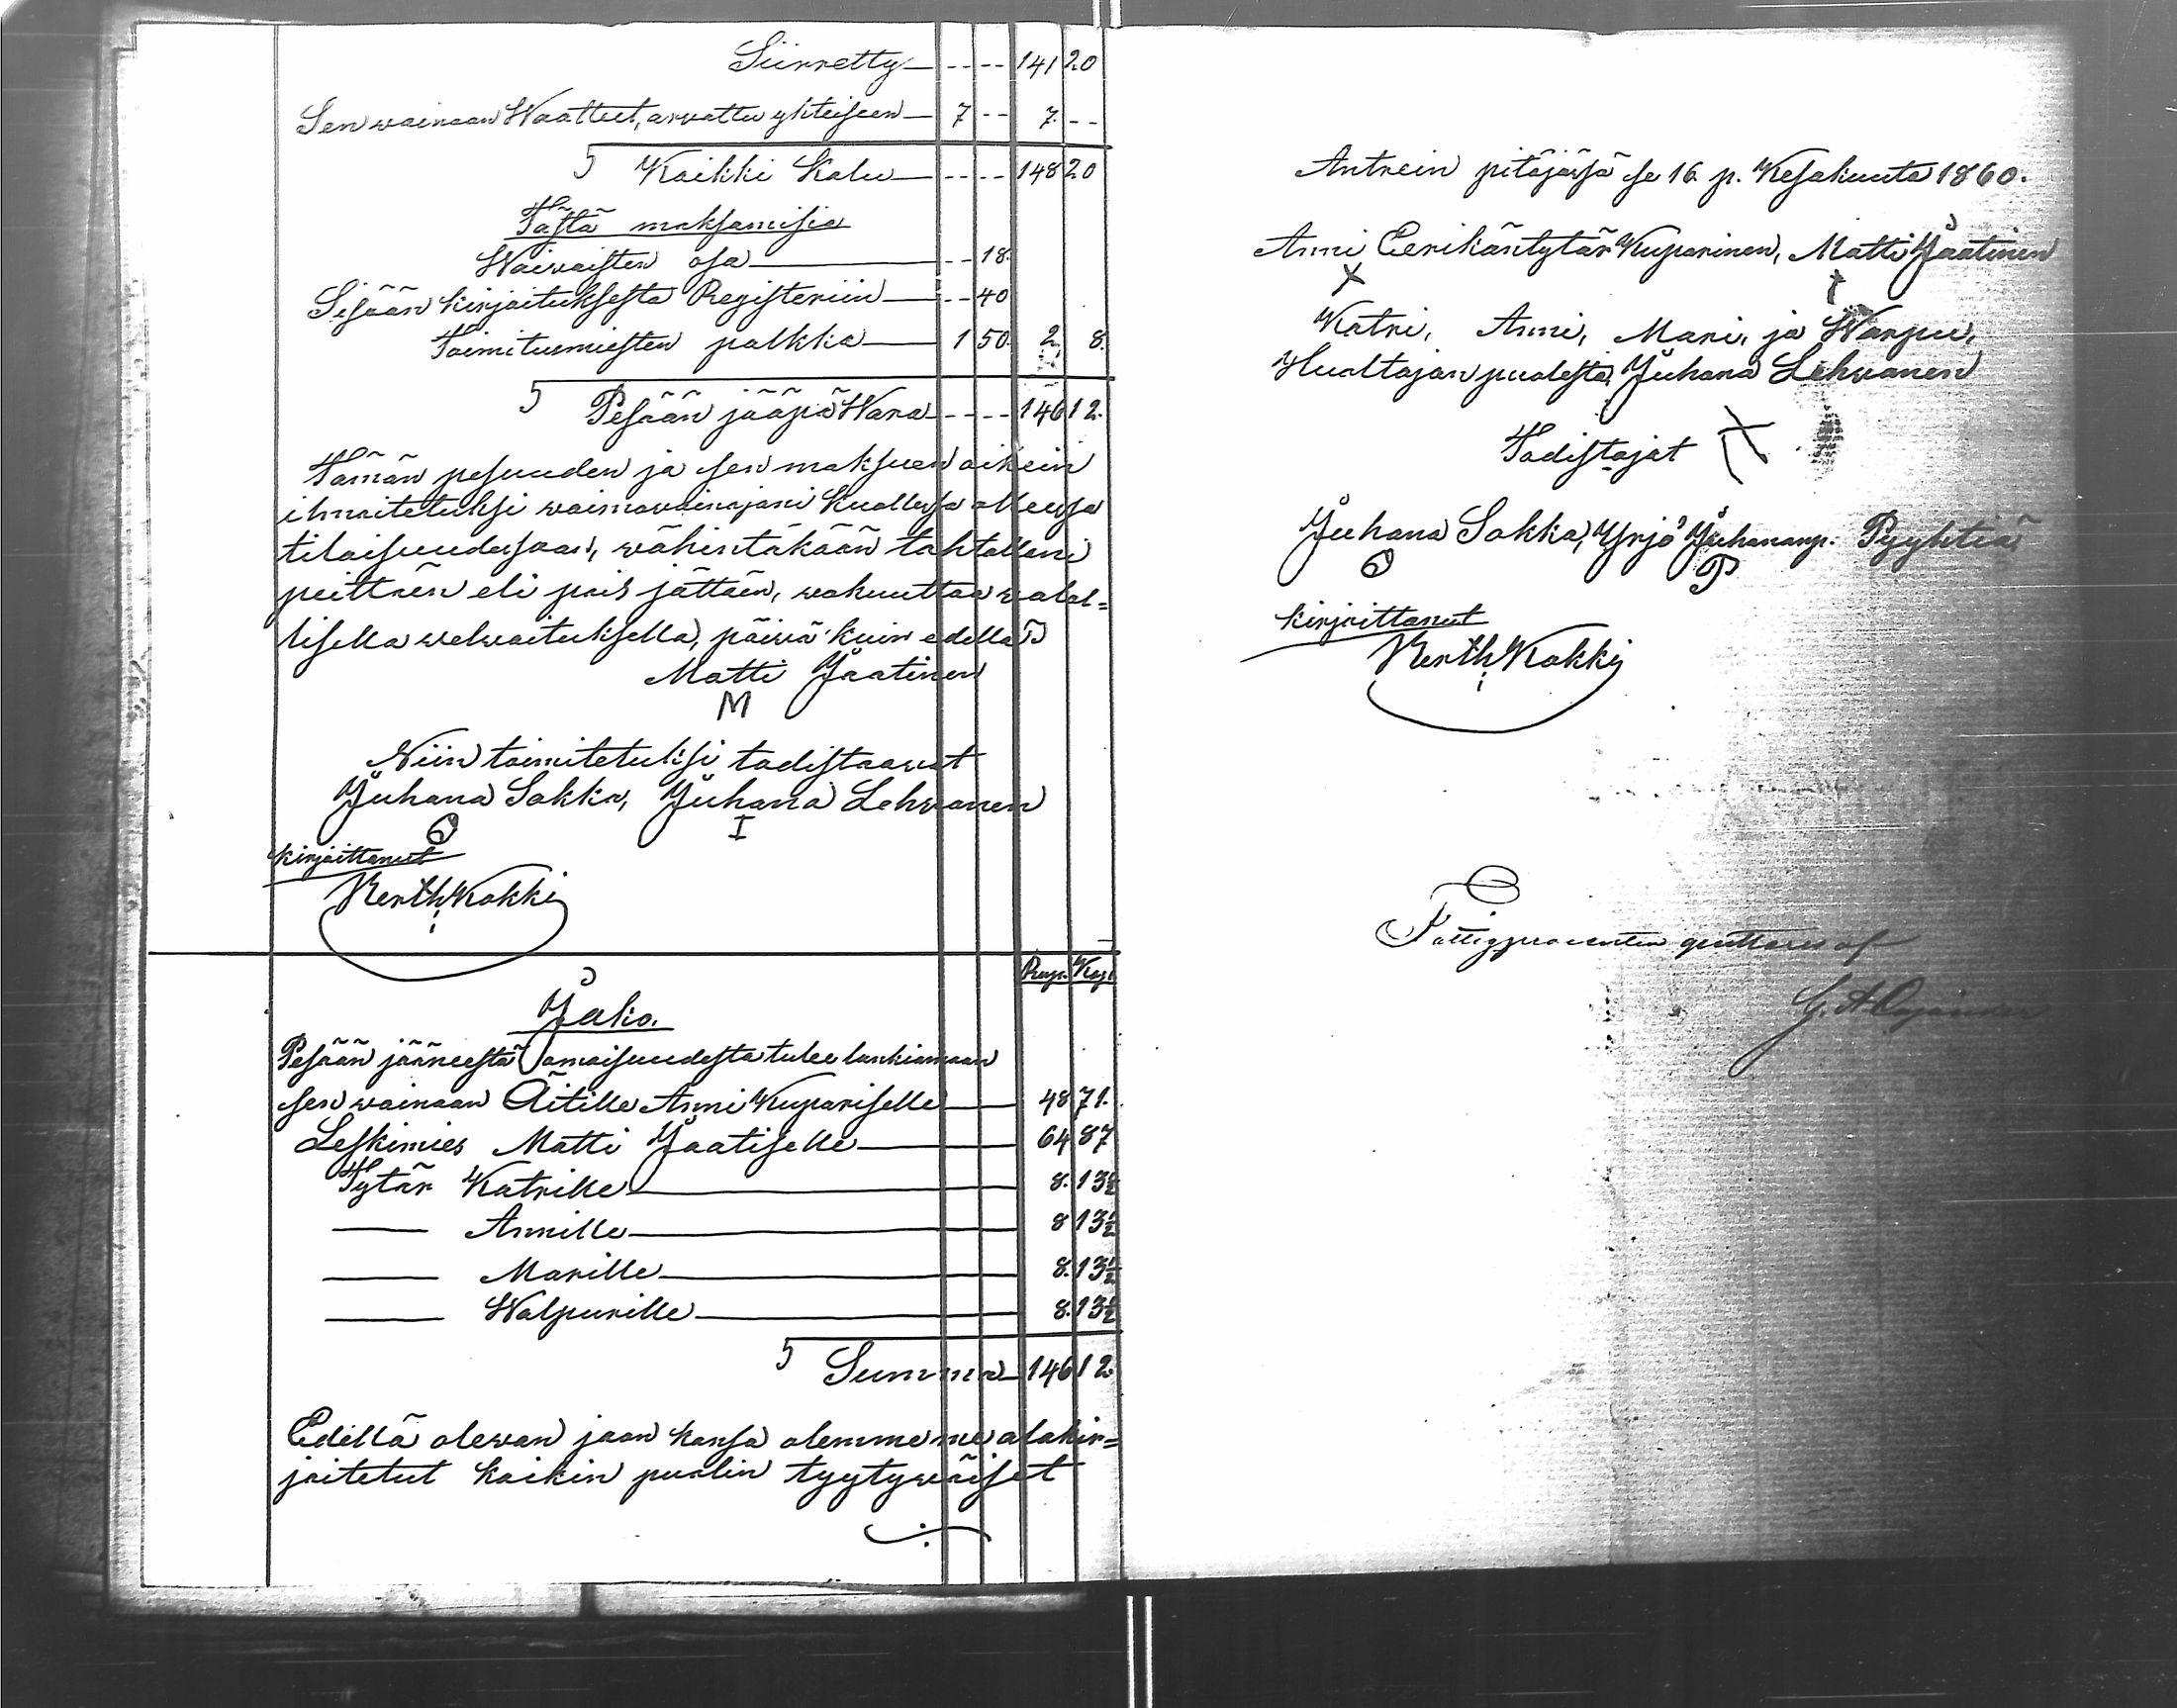 Siirretty - - - - 141 20
Sen wainaan Waatteet, arvattu yhteiseen 7 - - 7. - -
Kaikki Kalu - - - - 148 20
Tästä maksamisia
Waiwaisten osa - - 18.
Sisään kirjoituksesta Registeriin - - 40
Toimitusmiesten palkka 1 50. 2. 8.
Pesään jääpä Wara - - - - 146 12.
Tämän pesuuden ja sen maksuen oikein
ilmoitetuksi waimovainajani kuollessa olleessa
tilaisuudessaan, wähintäkään tahtallani
peittäen eli pois jättäen, wakuuttaa walal=
lisella welwoituksella, päiwä kuin edellä
Matti Jaatinen
M
Niin toimitetuksi todistaawat
Juhana Sakka, Juhana Lehvanen
I
kirjoittanut
Berth Kokki
Rup. Kop.
Jako.
Pesään jääneestä omaisuudesta tulee lankiamaan
sen wainaan Äitille Anni Kupariselle 48 71.
Leskimies Matti Jaatiselle 64 87
Tytär Katrille 8. 13½
— Annille 8 13½
— Marille 8. 13½
— Walpurille 8. 13½
Summa 146 12.
Edellä olewan jaon kansa olemme me alakir=
joitetut kaikin puolin tyytywäiset
Antrein pitäjäsä se 16 p. Kesäkuuta 1860.
Anni Eerikäntytär Kuparinen, Matti Jaatinen
X X
Katri, Anni, Mari, ja Warpu,
Huoltajan puolesta Juhana Lehvanen
Todistajat
Juhana Sakka, Yrjö Juhananp. Pyyhtiä
P
kirjoittanut
Berth Kokki
Fattigprocenten qvitteras af